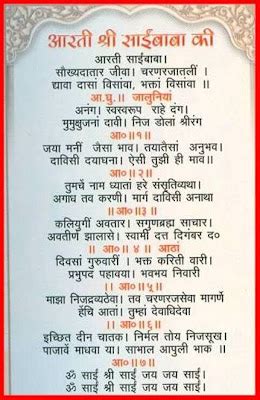 आरती श्री साईबाबा की
आरती साईबाबा।
सौख्यदातार जीवा। चरणरजातलीं ।
द्यावा दासां विसांवा, भक्तां विसांवा ।।
आ.धु.।। जालुनियां
अनंग। स्वस्वरूप राहे दंग।
मुमुक्षुजनां दावी। निज डोळा श्रीरंग
आ०।।१।।
जया मनीं जैसा भाव। तयातैसा अनुभव।
दाविसी दयाघना। ऐसी तुझी ही माव।।
आ०।।२।।
तुमचें नाम ध्याता हरे संसृतिव्यथा।
अगाध तव करणी। मार्ग दाविसी अनाथा
आ०।।३ ।।
कलियुगीं अवतार। सगुणब्रह्म साचार।
अवतीर्ण झालासे। स्वामी दत्त दिगंबर द०
।।आ०।। ४ ।। आठां
दिवसां गुरुवारीं । भक्त करिती वारी।
प्रभुपद पहावया। भवभय निवारी
।।आ०।।५।।
माझा निजद्रव्यठेवा। तव चरणरजसेवा मागणें
हेंचि आतां। तुम्हां देवाधिदेवा
।।आ०।।६।।
इच्छित दीन चातक। निर्मल तोय निजसूख।
पाजावें माधवा या। साभाळ आपुली भाक ।।
।।आ०।।७।।
ॐ साईं श्री साईं जय जय साईं।
ॐ साईं श्री साईं जय जय साईं।